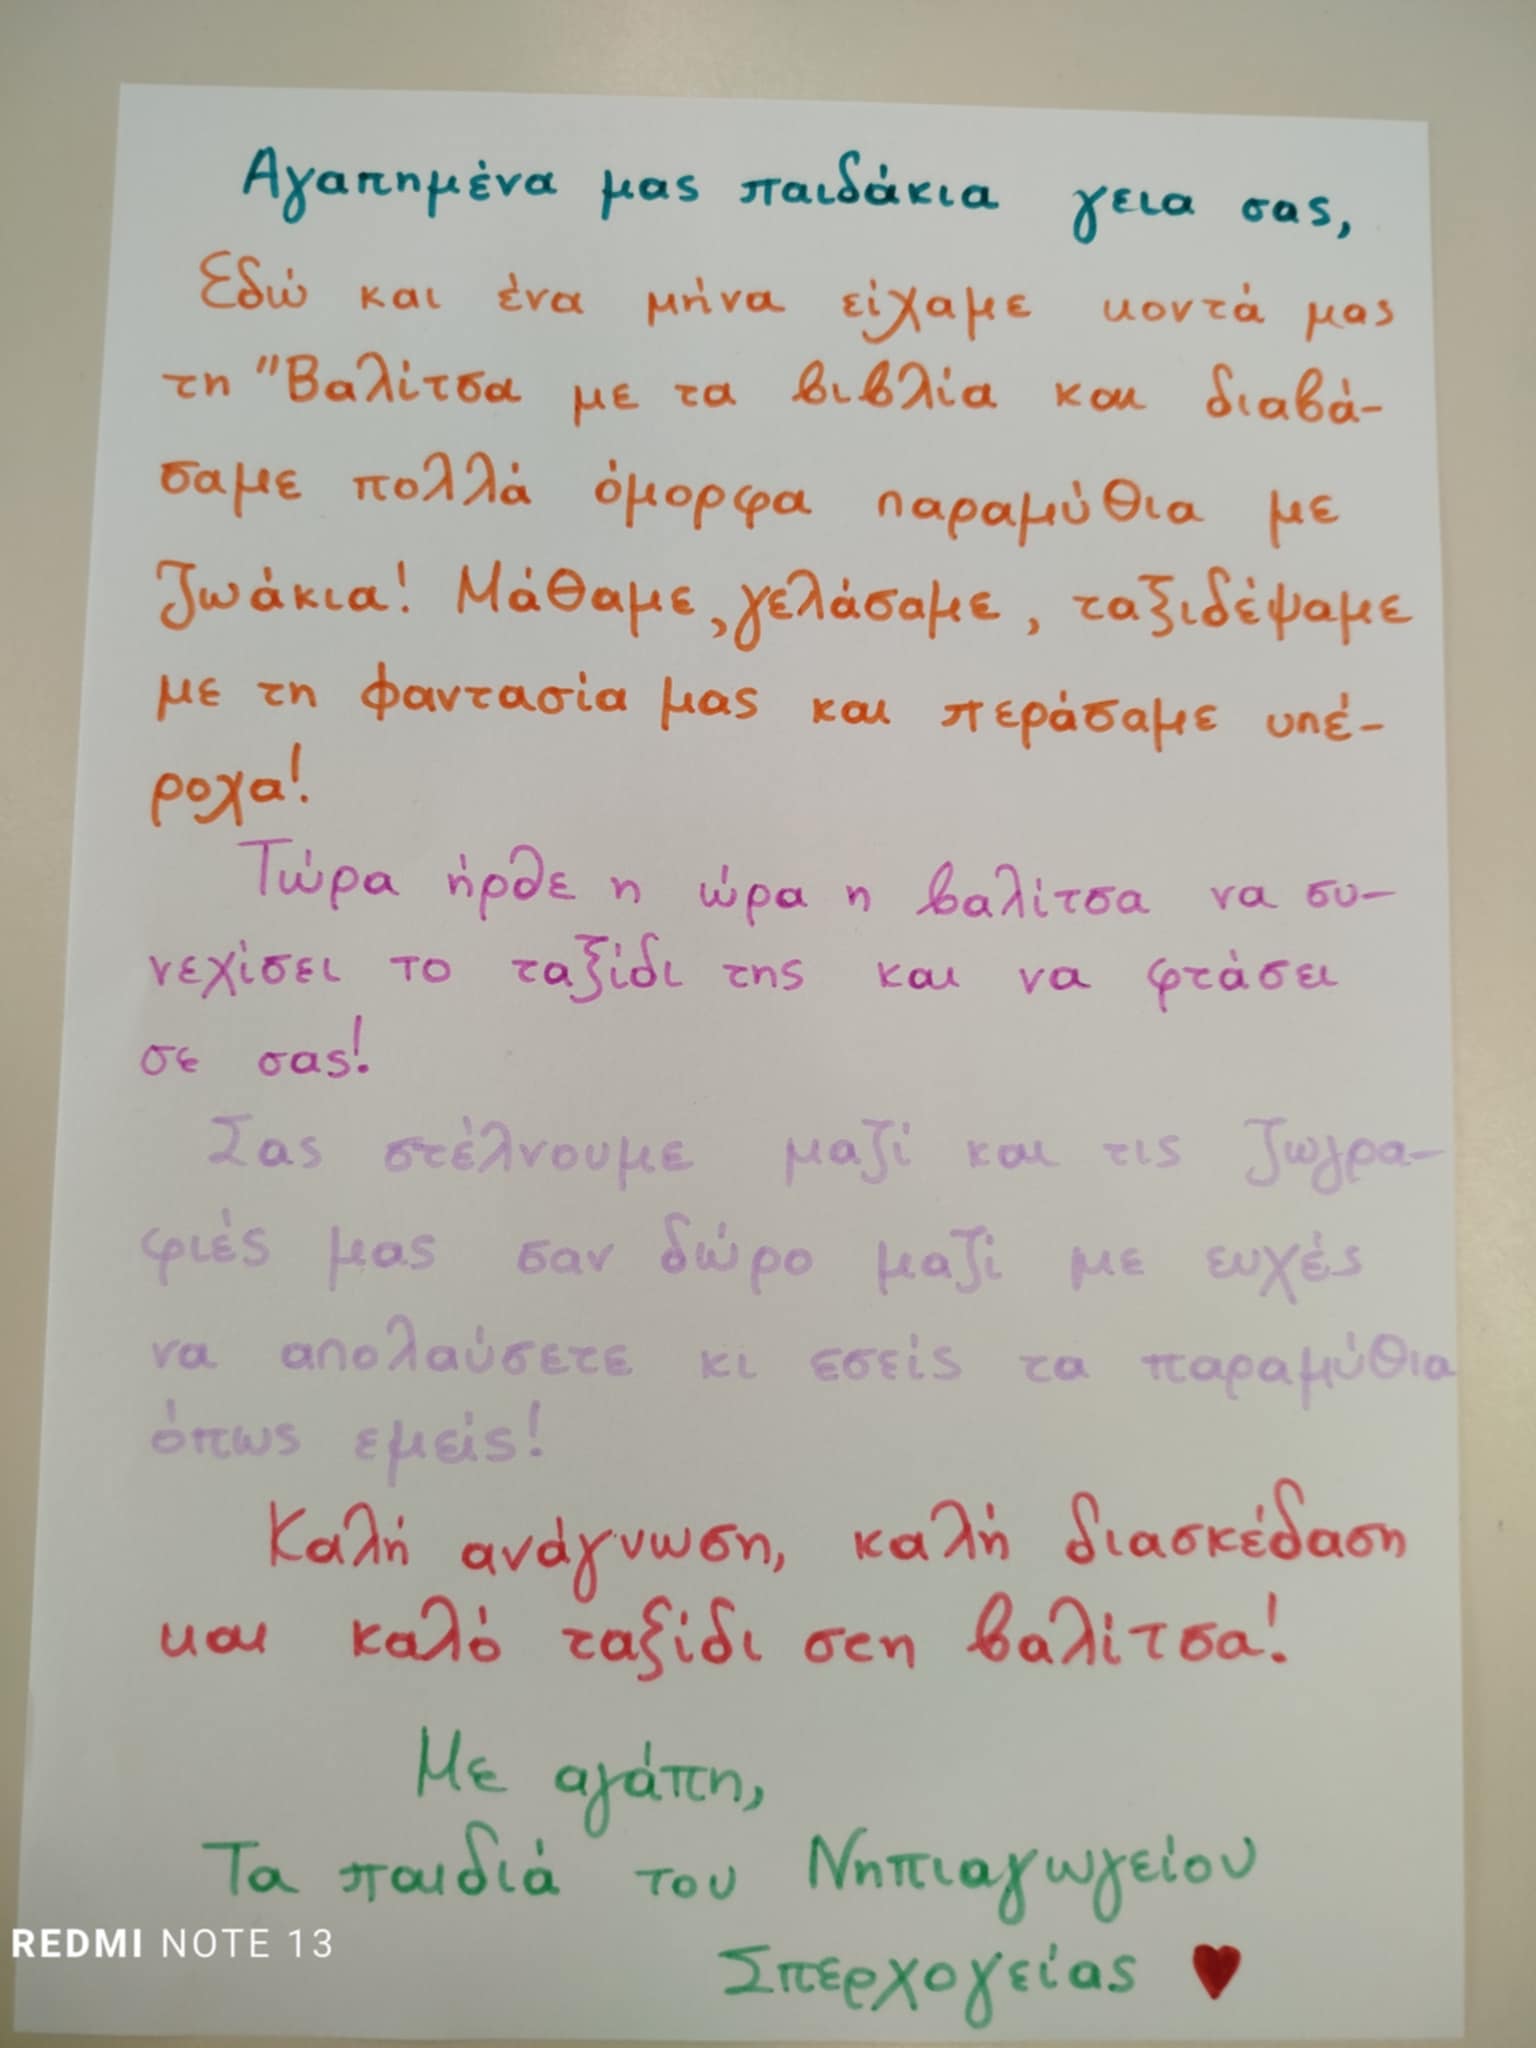 Αγαπημένα μας παιδάκια γεια σας,
Εδώ και ένα μήνα είχαμε κοντά μας
τη "Βαλίτσα με τα βιβλία και διαβά-
σαμε πολλά όμορφα παραμύθια με
ζωάκια! Μάθαμε, γελάσαμε, ταξιδέψαμε
με τη φαντασία μας και περάσαμε υπέ-
ροχα!
Τώρα ήρθε η ώρα η βαλίτσα να συ-
νεχίσει το ταξίδι της και να φτάσει
σε σας!
Σας στέλνουμε μαζί και τις ζωγρα-
φιές μας σαν δώρο μαζί με ευχές
να απολαύσετε κι εσείς τα παραμύθια
όπως εμείς!
Καλή ανάγνωση, καλή διασκέδαση
και καλό ταξίδι στη βαλίτσα!
Με αγάπη,
Τα παιδιά του Νηπιαγωγείου
Σπερχογείας
REDMI NOTE 13